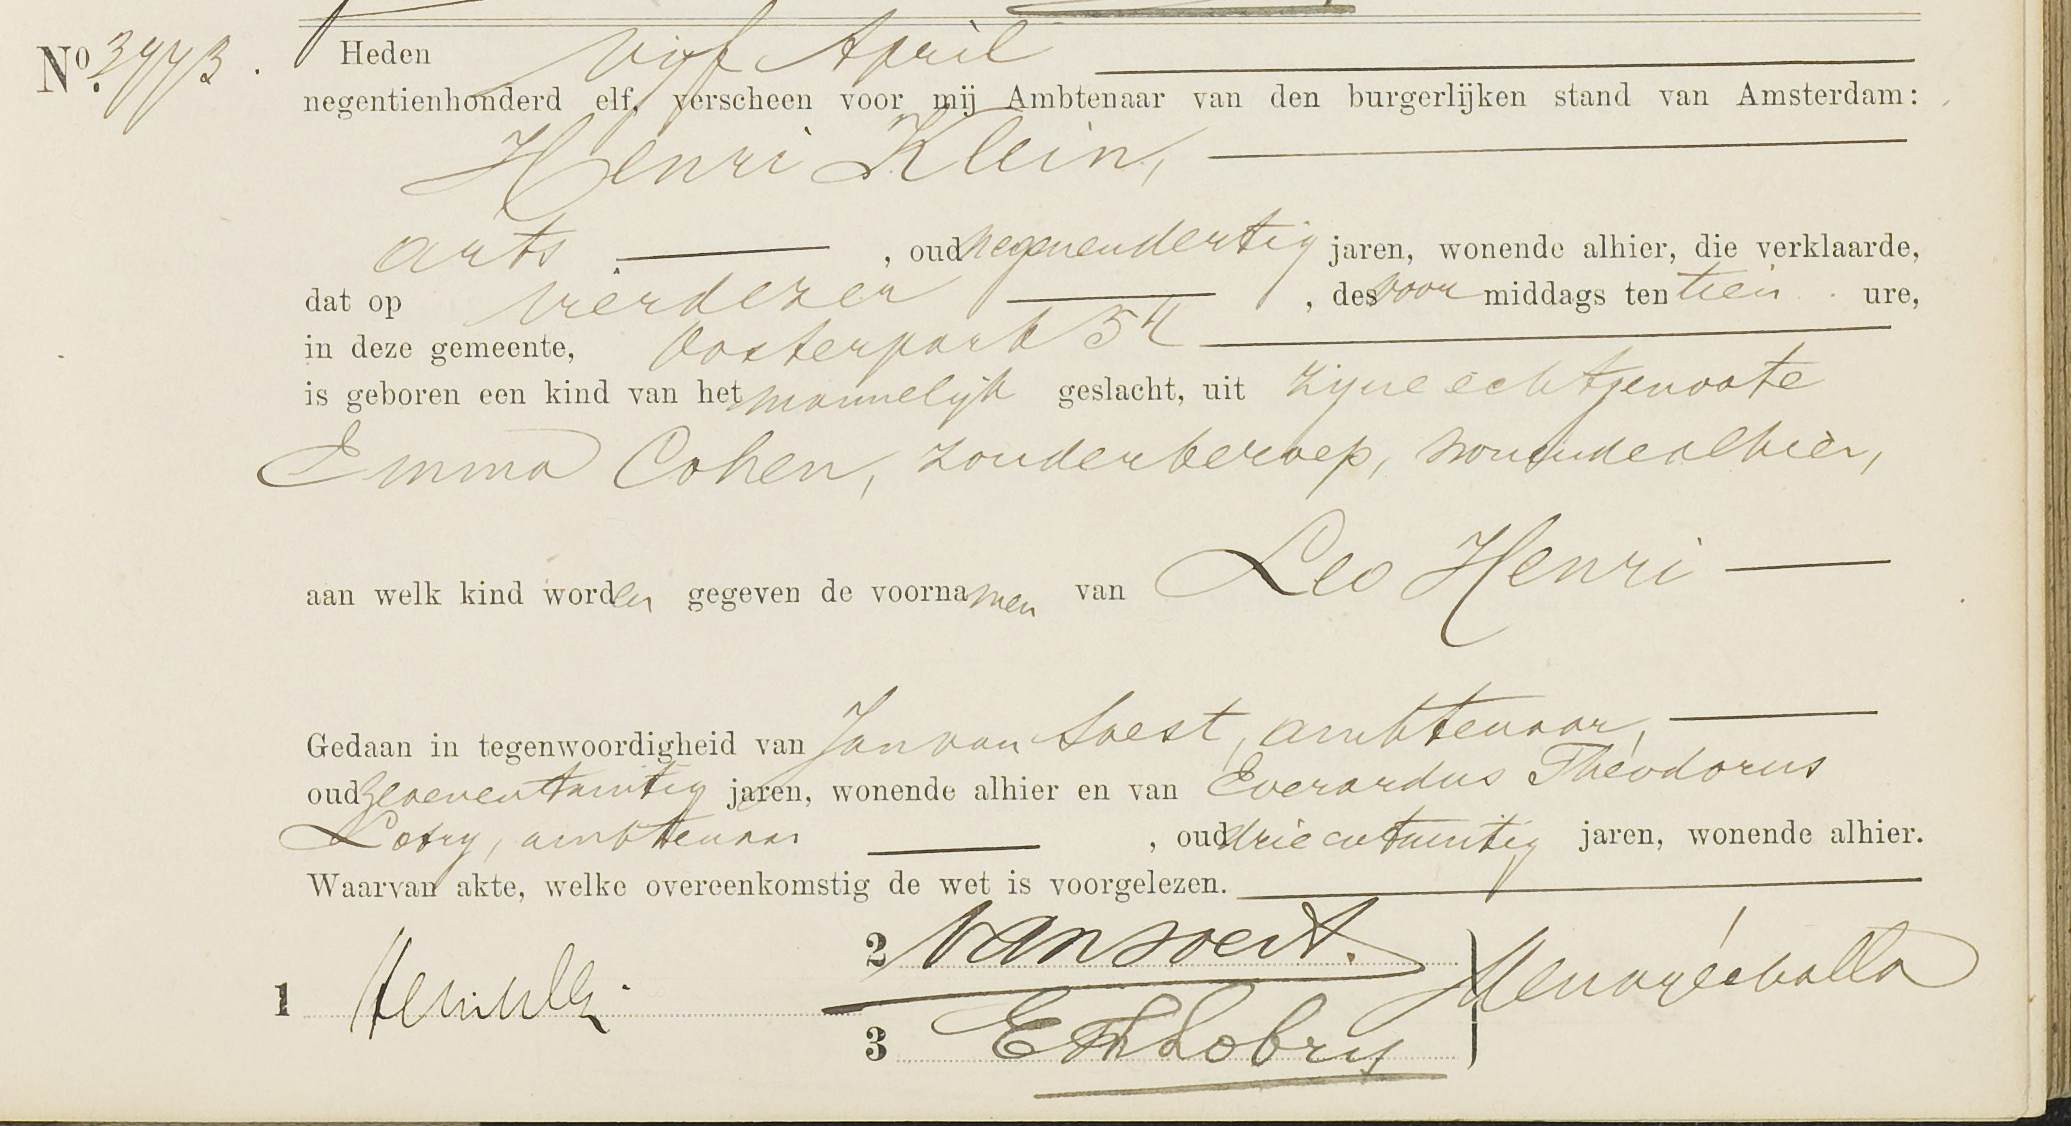 No. 3773. Heden vijf April
negentienhonderd elf, verscheen voor mij Ambtenaar van den burgerlijken stand van Amsterdam:
Henri Klein,
arts , oud negenendertig jaren, wonende alhier, die verklaarde,
dat op vierdezer , des voor middags ten tien ure,
in deze gemeente, Oosterpark 54
is geboren een kind van het mannelijk geslacht, uit zijne echtgenoote
Emma Cohen, zonder beroep, wonende alhier,
aan welk kind worden gegeven de voornamen van Leo Henri
Gedaan in tegenwoordigheid van Jan van Soest, ambtenaar,
oud zevenentwintig jaren, wonende alhier en van Everardus Theodorus
Lobry, ambtenaar , oud drieentwintig jaren, wonende alhier.
Waarvan akte, welke overeenkomstig de wet is voorgelezen.
2 van Soest.
1
3 E Th Lobry